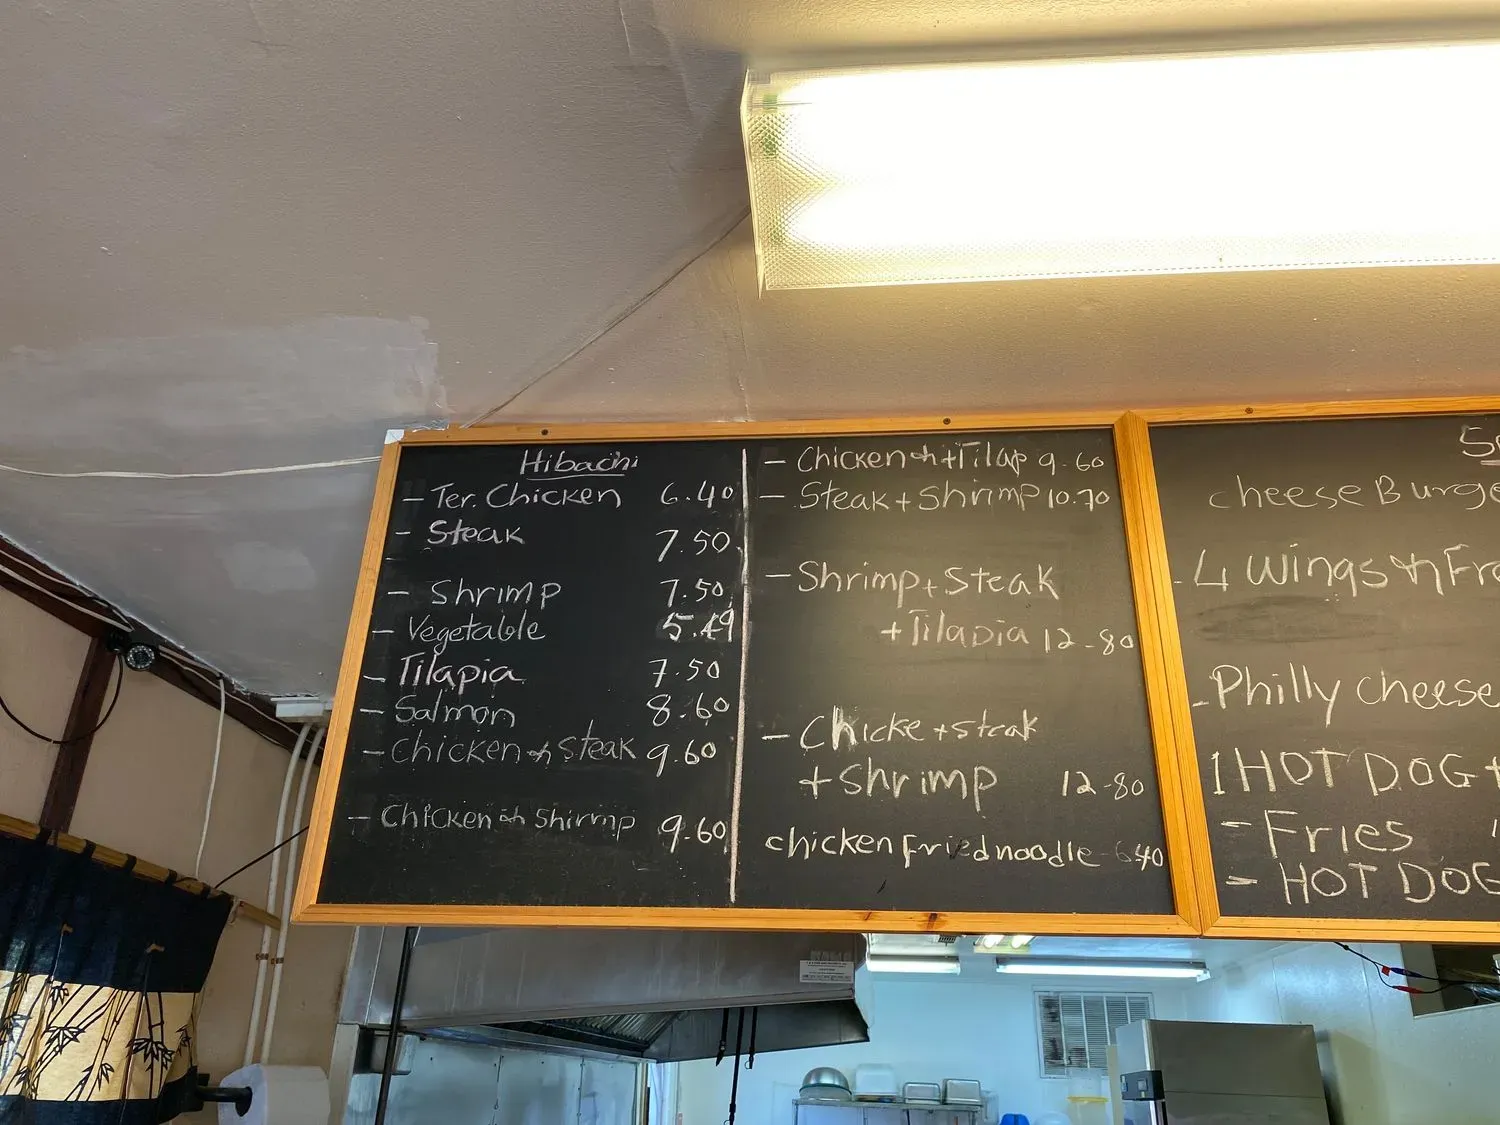 Hibachi
- Ter. Chicken 6.40
- Steak 7.50
- Shrimp 7.50
- Vegetable 5.49
- Tilapia 7.50
- Salmon 8.60
- Chicken n steak 9.60
- Chicken n Shirmp 9.60
- Chicken n + Tilap 9.60
- Steak + Shrimp 10.70
- Shrimp + Steak
+ Tilapia 12-80
- Chicke + steak
+ Shrimp 12-80
chicken Fried noodle 6.40
cheese Burge
- 4 Wings n Fr
- Philly cheese
1 HOT DOG +
- Fries
- HOT DOG